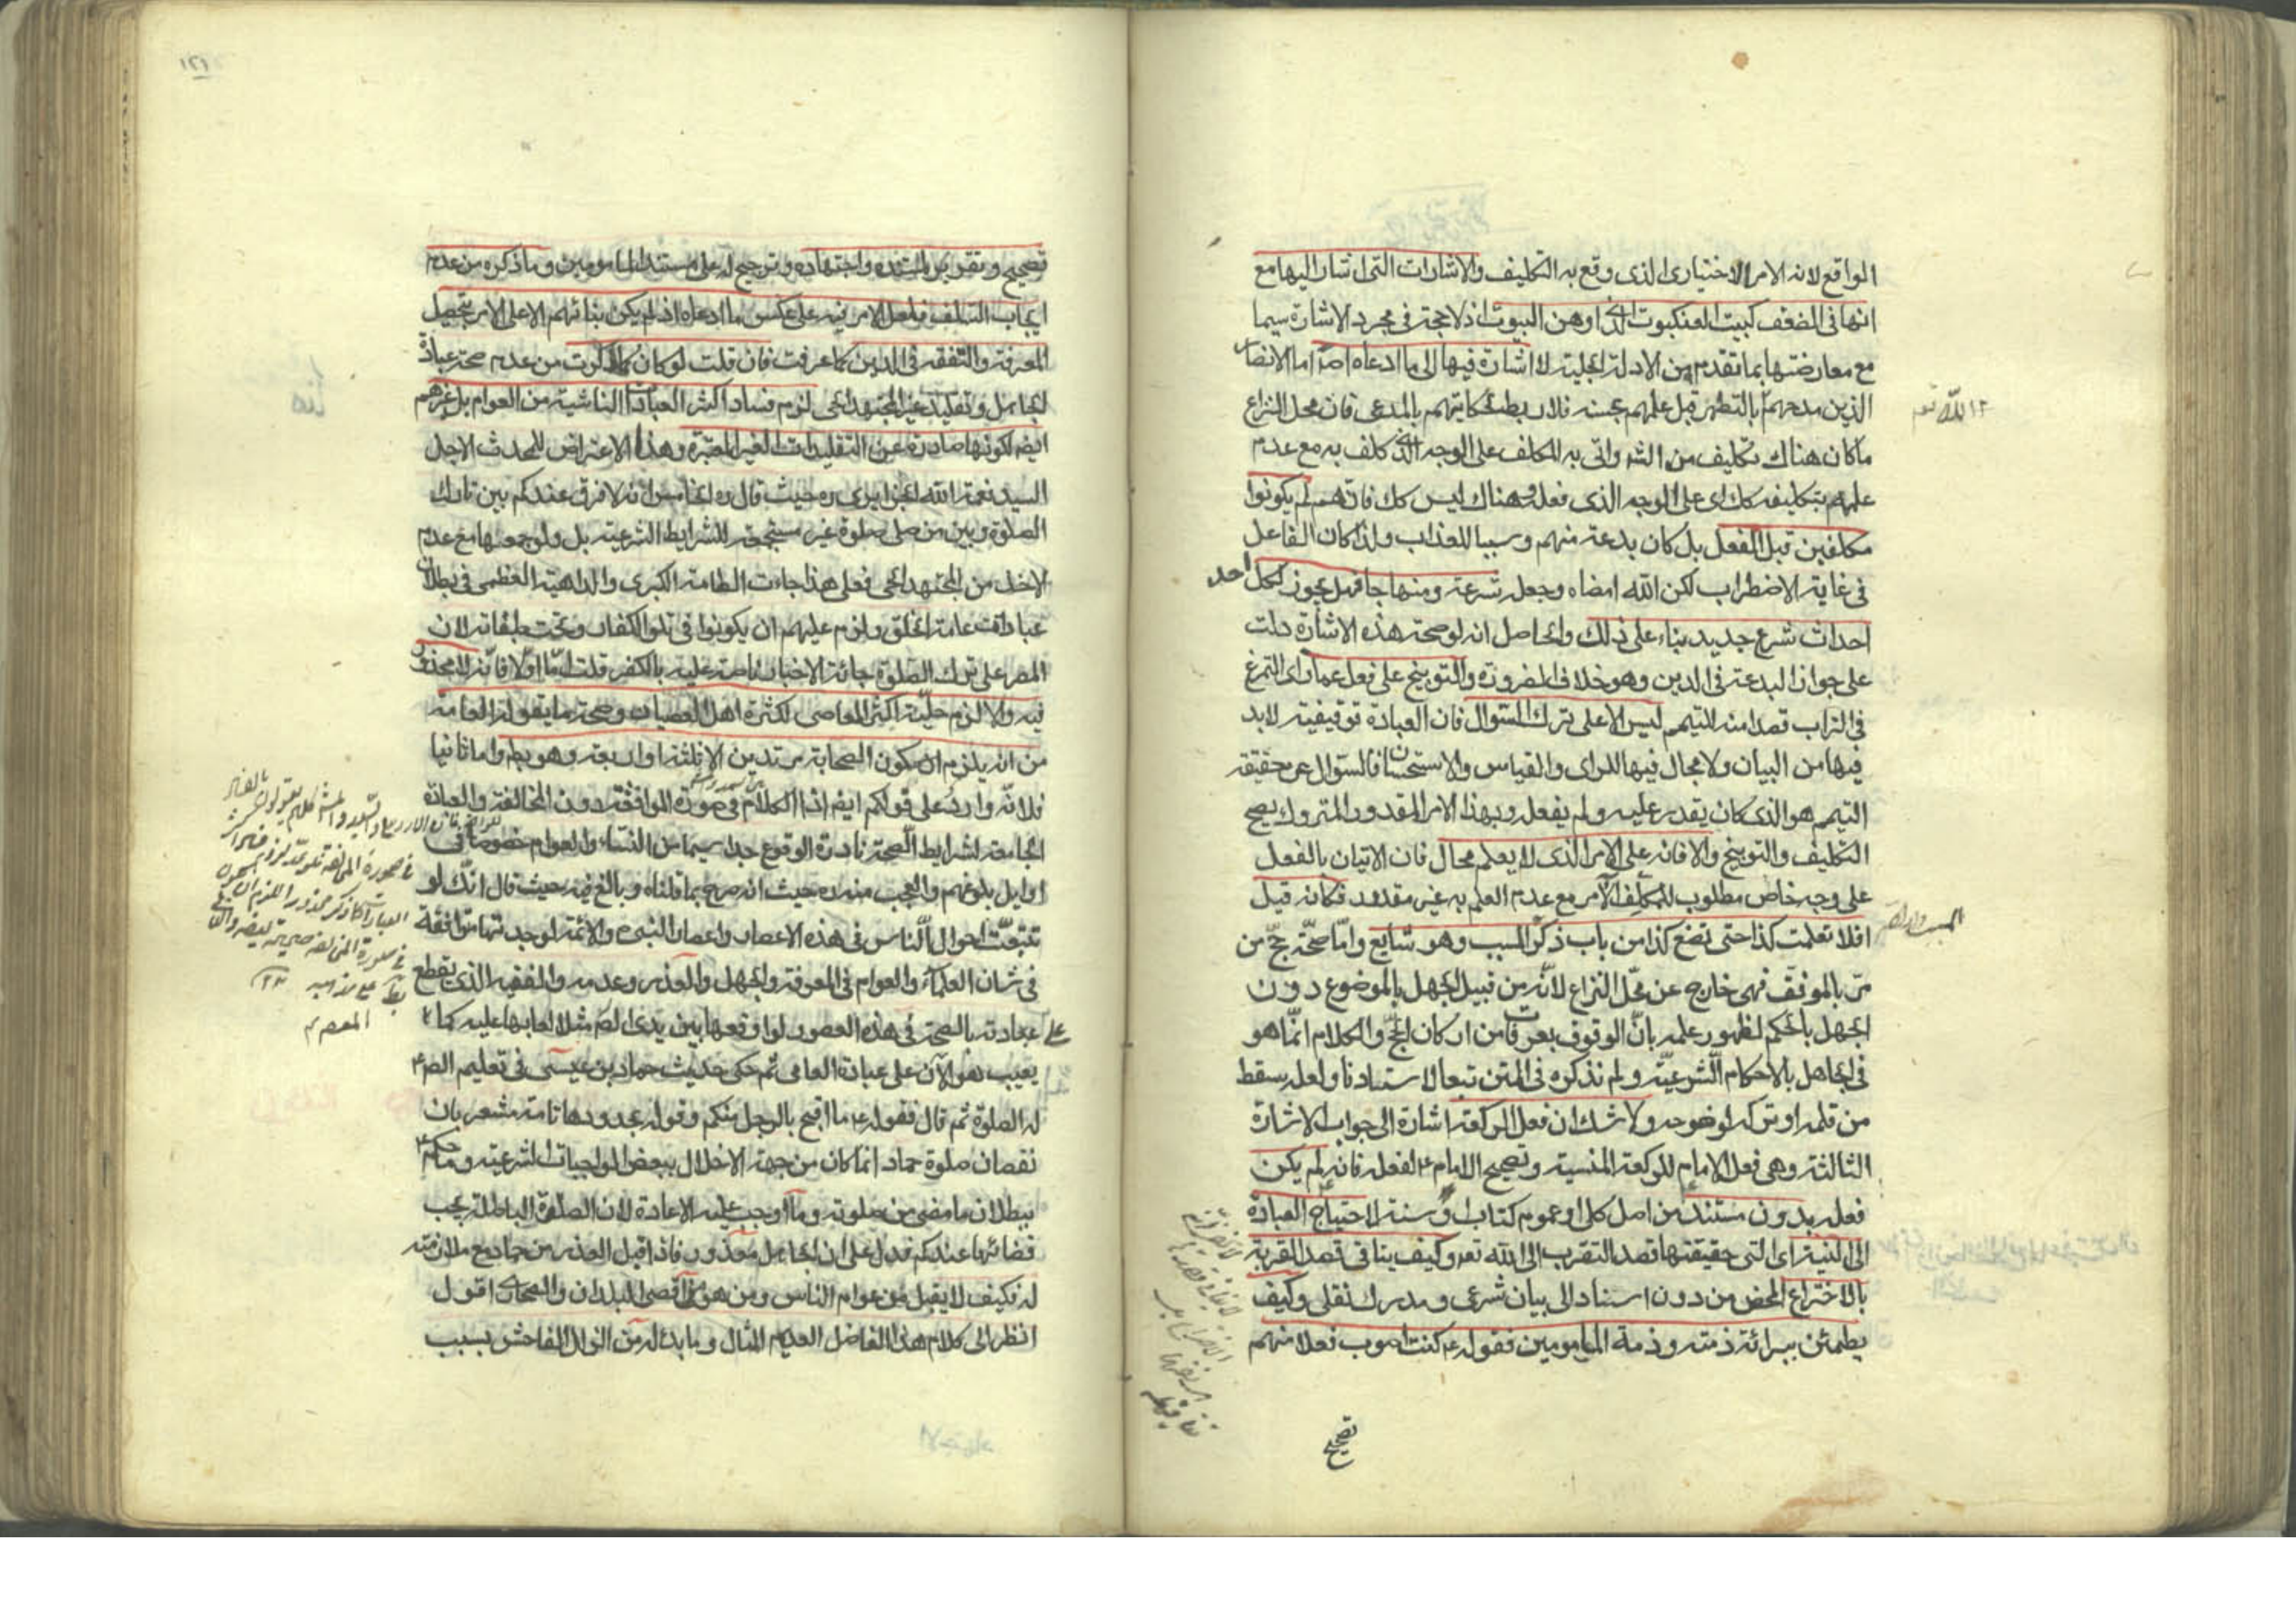 الواقع لانه الامر الاختيارى الذى وقع به التكليف والاشارات التى اشار اليها مع
انها فى الضعف كبيت العنكبوت الذى اوهن البيوت اذ لا حجة فى مجرد الاشارة سيما
مع معارضتها بما تقدم من الادلة الجلية لا اشارة فيها الى ما ادعاه اصلا اما الانصار
الذين مدحهم بالتطهر قبل علمهم بحسنه فلا ربط لحكايتهم بالمدعى فان محل النزاع
ما كان هناك تكليف من الشرع واتى به المكلف على الوجه الذى كلف به مع عدم
علمهم بتكليفه كك اى على الوجه الذى فعله وهناك ليس كك فانهم لم يكونوا
مكلفين قبل الفعل بل كان بدعة منهم وسببا للعذاب ولذا كان الفاعل
فى غاية الاضطراب لكن الله امضاه وجعله شرعة ومنهاجا فهل يجوز لكل احد
احداث شرع جديد بناء على ذلك والحاصل انه لو صحة هذه الاشارة دلت
على جواز البدعة فى الدين وهو خلاف الضرورة والتوبيخ على فعل عمار اى التمرغ
فى التراب قصدا منه للتيمم ليس الا على ترك السئوال فان العبادة توقيفية لا بد
فيها من البيان ولا مجال فيها للراى والقياس والاستحسان فالسئوال عن حقيقة
التيمم هو الذى كان يقدر عليه ولم يفعله وبهذا الامر المقدور المتروك يصح
التكليف والتوبيخ والا فانه على الامر الذى لا يعلم محال فان الاتيان بالفعل
على وجه خاص مطلوب للمكلف الآمر مع عدم العلم به غير مقدور فكانه قيل
افلا تعلمت كذا حتى تضع كذا من باب ذكر المسبب وهو شايع واما صحة حج من
مر بالموقف فهى خارج عن محل النزاع لانه من قبيل الجهل بالموضوع دون
الجهل بالحكم لظهور علمه بان الوقوف بعرفات من اركان الحج والكلام انما هو
فى الجاهل بالاحكام الشرعية ولم نذكره فى المتن تبعا لاستادنا ولعله سقط
من قلمه او تركه لوضوحه ولا شك ان فعل الركعة اشارة الى جواب الاشارة
الثالثة وهى فعل الامام للركعة المنسية وتصحيح الامام ع لفعله فانه لم يكن
فعله بدون مستند من اصل كلى او عموم كتاب او سنة لاحتياج العبادة
الى النية اى التى حقيقتها قصد التقرب الى الله تعه وكيف يتاتى قصد القربة
بالاختراع المحض من دون استناد الى بيان شرعى ومدرك نقلى وكيف
يطمئن ببرائة ذمته وذمة المامومين فقوله ع كنت اصوب فعلا منهم
تصحيح
١٢١
تصحيح وتقرير لمستنده واجتهاده وترجيح له على مستند المامومين وما ذكره من عدم
ايجاب السلف فلعل الامر فيه على عكس ما ادعاه اذ لم يكن بنائهم الا على الامر بتحصيل
المعرفة والتفقه فى الدين كما عرفت فان قلت لو كان كما ذكرت من عدم صحة عبادة
الجاهل وتقليد غير المجتهد الحى لزم فساد اكثر العبادات الناشية من العوام بل غيرهم
ايضا لكونها صادرة عن التقليدات الغير المعتبرة وهذا الاعتراض للمحدث الاجل
السيد نعمة الله الجزايرى ره حيث قال ره الخامس انه لا فرق عندكم بين تارك
الصلوة وبين من صلى صلوة غير مستجمعة للشرايط الشرعية بل ولو جمعها مع عدم
الاخذ من المجتهد الحى فعلى هذا جاءت الطامة الكبرى والداهية العظمى فى بطلان
عبادات عامة الخلق ولزم عليهم ان يكونوا فى تلو الكفار وتحت طبقاته لان
المصر على ترك الصلوة جائة الاخبار ناصة عليه بالكفر قلت اما اولا فانه لا محذور
فيه والا لزم حلية اكثر المعاصى لكثرة اهل العصيان وصحة ما يقوله العامة
من انه يلزم ان يكون الصحابة مرتدين الا ثلثة او اربعة وهو بط واما ثانيا
فلانه وارد على قولكم ايضا اذ الكلام فى صورة الموافقة دون المخالفة والعبادة
الجامعة لشرايط الصحة نادرة الوقوع جدا سيما من النساء والعوام خصوصا فى
اوايل بلوغهم والعجب منه ره حيث انه صرح بما قلناه وبالغ فيه حيث قال انك لو
تتبعت احوال الناس فى هذه الاعصار واعصار النبى ص والائمة لوجدتها متوافقة
فى شان العلماء والعوام فى المعرفة والجهل والعذر وعدمه والفقيه الذى يقطع
على عبادته بالصحة فى هذه العصور لو اوقعها بين يدى الص مثلا لعابها عليه كما
يعيب هو الآن على عبادة العامى ثم حكى حديث حماد بن عيسى فى تعليم الص ع
له الصلوة ثم قال فقوله ع ما اقبح بالرجل منكم وقوله بحدودها تامة مشعر بان
نقصان صلوة حماد انما كان من جهة الاخلال ببعض الواجبات الشرعية وما حكم ع
ببطلان ما مضى من صلوته وما اوجب عليه الاعادة لان الصلوة الباطلة يجب
قضائها عندكم فدل على ان الجاهل معذور فاذا قبل العذر من حماد مع ملازمته
له فكيف لا يقبل من عوام الناس ومن هو فى اقصى البلدان والصحارى اقول
انظر الى كلام هذا الفاضل العديم المثال وما بدا له من الزلل الفاحش بسبب